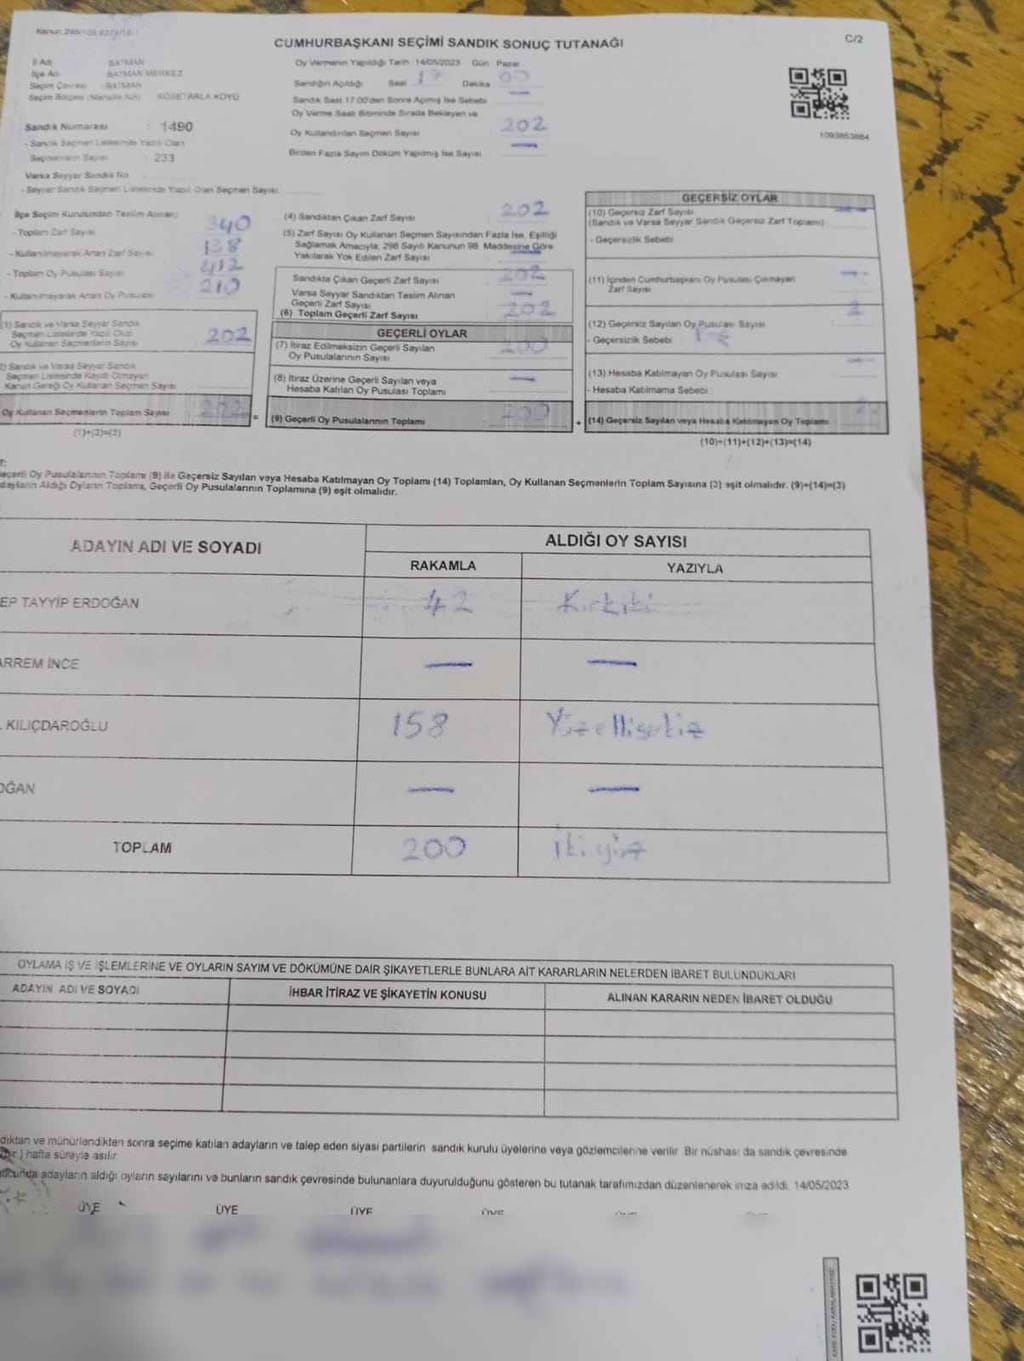 CUMHURBAŞKANI SEÇİMİ SANDIK SONUÇ TUTANAĞI
C/2
İl Adı : BATMAN
İlçe Adı : BATMAN MERKEZ
Seçim Çevresi : BATMAN
KÖSETARLA KÖYÜ
Sandık Numarası : 1490
- Sandık Seçmen Listesinde Yazılı Olan
Seçmenlerin Sayısı : 233
Varsa Seyyar Sandık No
- Seyyar Sandık Seçmen Listelerinde Yazılı Olan Seçmen Sayısı
Oy Vermenin Yapıldığı Tarih : 14/05/2023 Gün : Pazar
Sandığın Açıldığı Saat 17 Dakika 00
Sandık Saat 17:00'den Sonra Açılmış İse Sebebi —
Oy Verme Saati Bitiminde Sırada Bekleyen ve
Oy Kullandırılan Seçmen Sayısı 202
Birden Fazla Sayım Döküm Yapılmış İse Sayısı —
1093853884
İlçe Seçim Kurulundan Teslim Alınan:
- Toplam Zarf Sayısı 340
- Kullanılmayarak Artan Zarf Sayısı 138
- Toplam Oy Pusulası Sayısı 412
- Kullanılmayarak Artan Oy Pusulası 210
(1) Sandık ve Varsa Seyyar Sandık
Seçmen Listelerinde Yazılı Olup
Oy Kullanan Seçmenlerin Sayısı 202
Sandık ve Varsa Seyyar Sandık
Seçmen Listesinde Kayıtlı Olmayan
Kanun Gereği Oy Kullanan Seçmen Sayısı
Oy Kullanan Seçmenlerin Toplam Sayısı 202 =
(1)+(2)=(3)
(4) Sandıktan Çıkan Zarf Sayısı 202
(5) Zarf Sayısı Oy Kullanan Seçmen Sayısından Fazla İse, Eşitliği
Sağlamak Amacıyla, 298 Sayılı Kanunun 98. Maddesine Göre
Yakılarak Yok Edilen Zarf Sayısı —
Sandıkta Çıkan Geçerli Zarf Sayısı 202
Varsa Seyyar Sandıktan Teslim Alınan
Geçerli Zarf Sayısı —
(6) Toplam Geçerli Zarf Sayısı 202
GEÇERLİ OYLAR
(7) İtiraz Edilmeksizin Geçerli Sayılan
Oy Pusulalarının Sayısı 200
(8) İtiraz Üzerine Geçerli Sayılan veya
Hesaba Katılan Oy Pusulası Toplamı —
(9) Geçerli Oy Pusulalarının Toplamı 200 +
GEÇERSİZ OYLAR
(10) Geçersiz Zarf Sayısı —
(Sandık ve Varsa Seyyar Sandık Geçersiz Zarf Toplamı)
- Geçersizlik Sebebi
(11) İçinden Cumhurbaşkanı Oy Pusulası Çıkmayan —
Zarf Sayısı
(12) Geçersiz Sayılan Oy Pusulası Sayısı 2
- Geçersizlik Sebebi
(13) Hesaba Katılmayan Oy Pusulası Sayısı —
- Hesaba Katılmama Sebebi
(14) Geçersiz Sayılan veya Hesaba Katılmayan Oy Toplamı
(10)+(11)+(12)+(13)=(14)
Oy Pusulalarının Toplamı (9) ile Geçersiz Sayılan veya Hesaba Katılmayan Oy Toplamı (14) Toplamları, Oy Kullanan Seçmenlerin Toplam Sayısına (3) eşit olmalıdır. (9)+(14)=(3)
Aldığı Oyların Toplamı, Geçerli Oy Pusulalarının Toplamına (9) eşit olmalıdır.
ADAYIN ADI VE SOYADI ALDIĞI OY SAYISI
RAKAMLA YAZIYLA
EP TAYYİP ERDOĞAN 42 Kırkiki
ARREM İNCE — —
KILIÇDAROĞLU 158 Yüzellisekiz
OĞAN — —
TOPLAM 200 İkiyüz
OYLAMA İŞ VE İŞLEMLERİNE VE OYLARIN SAYIM VE DÖKÜMÜNE DAİR ŞİKAYETLERLE BUNLARA AİT KARARLARIN NELERDEN İBARET BULUNDUKLARI
ADAYIN ADI VE SOYADI İHBAR İTİRAZ VE ŞİKAYETİN KONUSU ALINAN KARARIN NEDEN İBARET OLDUĞU
dıktan ve mühürlendikten sonra seçime katılan adayların ve talep eden siyasi partilerin sandık kurulu üyelerine veya gözlemcilerine verilir. Bir nüshası da sandık çevresinde
) hafta süreyle asılır.
adayların aldığı oyların sayılarını ve bunların sandık çevresinde bulunanlara duyurulduğunu gösteren bu tutanak tarafımızdan düzenlenerek imza edildi. 14/05/2023
ÜYE ÜYE ÜYE ÜYE